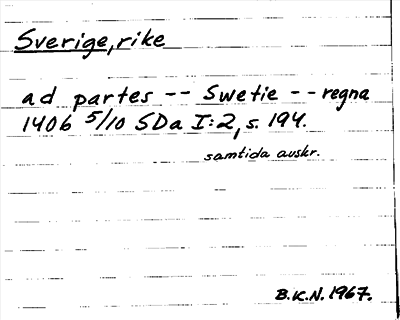 Sverige, rike
ad partes -- Swetie -- regna
1406 5/10 SDa I:2, s. 194.
samtida avskr.
B.K.N. 1967.